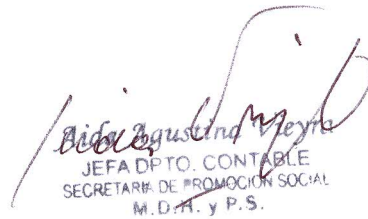 Aida Agustina Vieyra
JEFA DPTO. CONTABLE
SECRETARIA DE PROMOCION SOCIAL
M.D.H. y P.S.